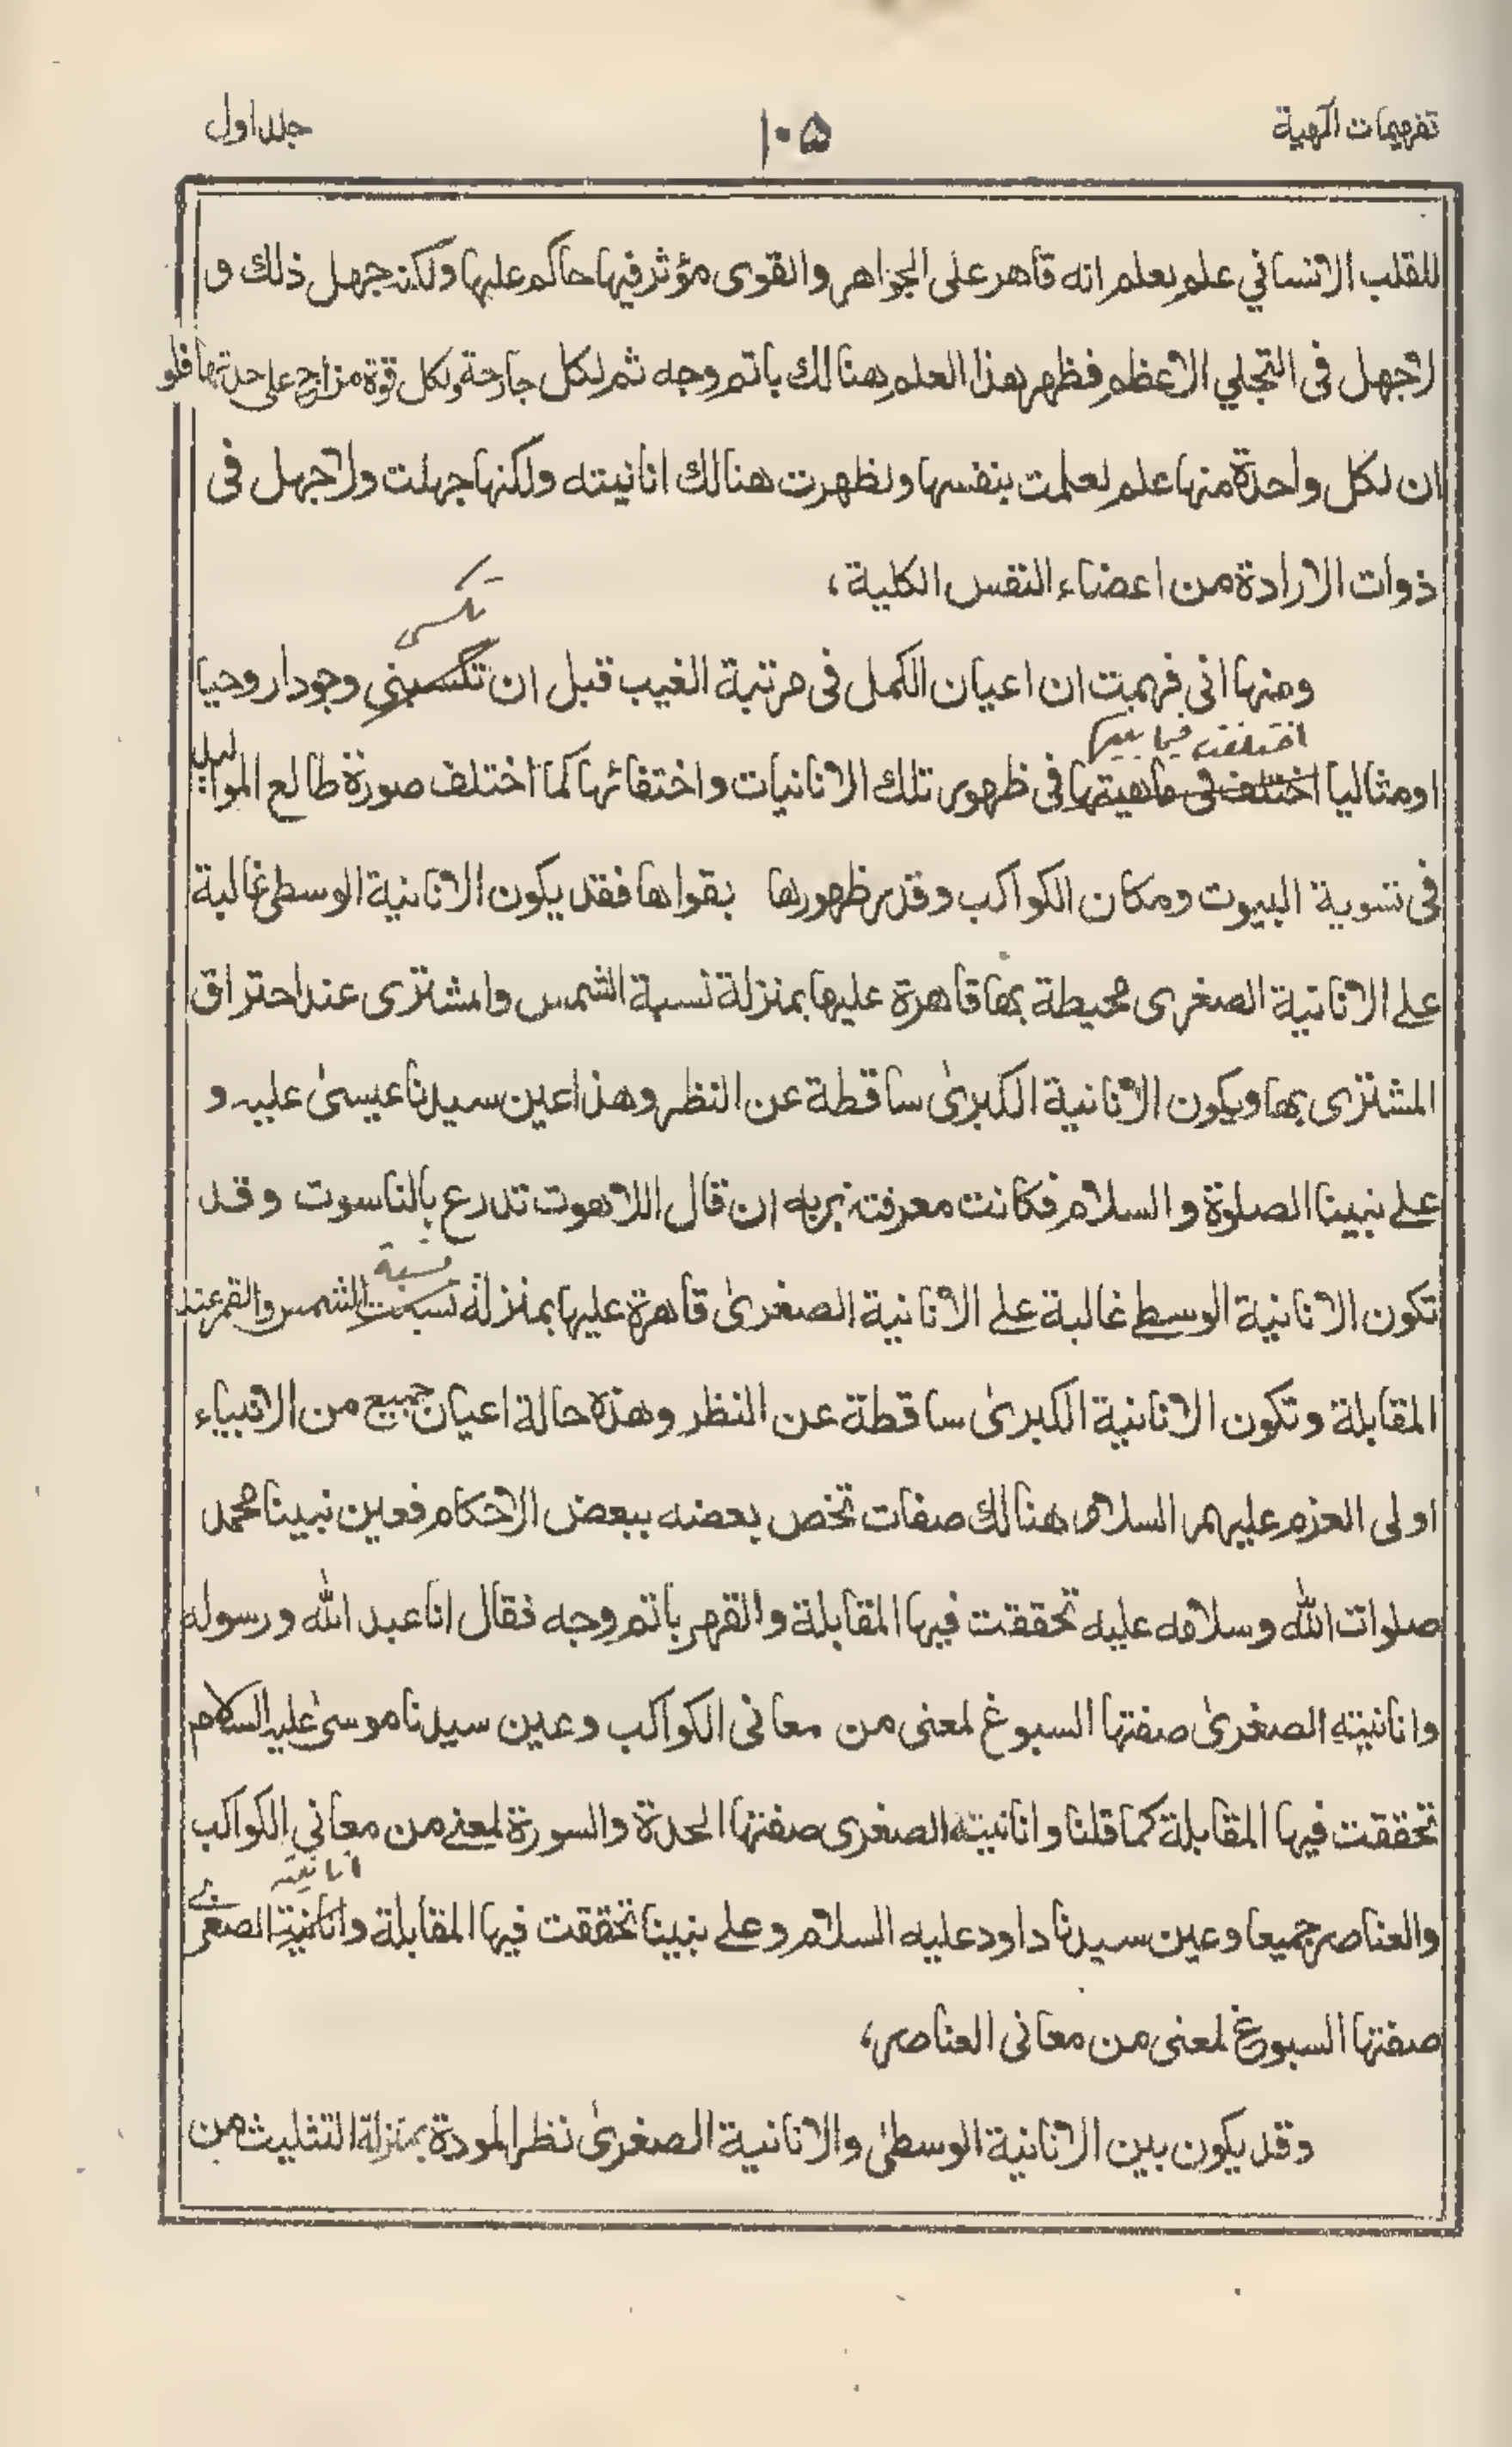 تفهيمات الٓهية
١٠۵
جلد اول
للقلب الانسانى علم لعلم انه قاهر على الجواهر والقوى مؤثر فيها حاكم عليها ولكنه جهل ذلك و
لاجهل فى التجلي الاعظم فظهر هذا العلم هنالك باتم وجه ثم لكل جارحة ولكل قوة مزاج على حدتها فلو
ان لكل واحدة منها علم لعلمت بنفسها ولظهرت هنالك انانيته ولكنها جهلت ولاجهل فى
ذوات الارادة من اعضاء النفس الكلية ،
تكسى
ومنها انى فهمت ان اعيان الكمل فى مرتبة الغيب قبل ان تكسبنى وجودا روحيا
اختلفت فيما بينها
او مثاليا اختلف فى ماهيتها فى ظهور تلك الانانيات واختفائها كما اختلف صورة طالع المواليد
فى تسوية البيوت ومكان الكواكب وقدر ظهورها بقواها فقد يكون الانانية الوسطى غالبة
على الانانية الصغرى محيطة بها قاهرة عليها بمنزلة نسبة الشمس والمشترى عند احتراق
المشترى بها ويكون الانانية الكبرىٰ ساقطة عن النظر وهذا عين سيدنا عيسىٰ عليه و
على نبينا الصلوة والسلام فكانت معرفته بربه ان قال اللاهوت تدرع بالناسوت وقد
نسبة
تكون الانانية الوسطى غالبة على الانانية الصغرىٰ قاهرة عليها بمنزلة نسبت الشمس والقمر عند
المقابلة وتكون الانانية الكبرىٰ ساقطة عن النظر وهذه حالة اعيان جميع من الانبياء
اولى العزم عليهم السلام هنالك صفات تخص بعضه ببعض الاحكام فعين نبينا محمد
صلوات الله وسلامه عليه تحققت فيها المقابلة والقهر باتم وجه فقال انا عبد الله ورسوله
وانانيته الصغرىٰ صفتها السبوغ لمعنى من معانى الكواكب وعين سيدنا موسىٰ عليه السلام
تحققت فيها المقابلة كما قلنا وانانيته الصغرى صفتها الحدة والسورة لمعنى من معانى الكواكب
انانيته
والعناصر جميعا وعين سيدنا داود عليه السلام وعلى نبينا تحققت فيها المقابلة وانانية الصغرى
صفتها السبوغ لمعنى من معانى العناصر،
وقد يكون بين الانانية الوسطىٰ والانانية الصغرىٰ نظر المودة بمنزلة التثليث من